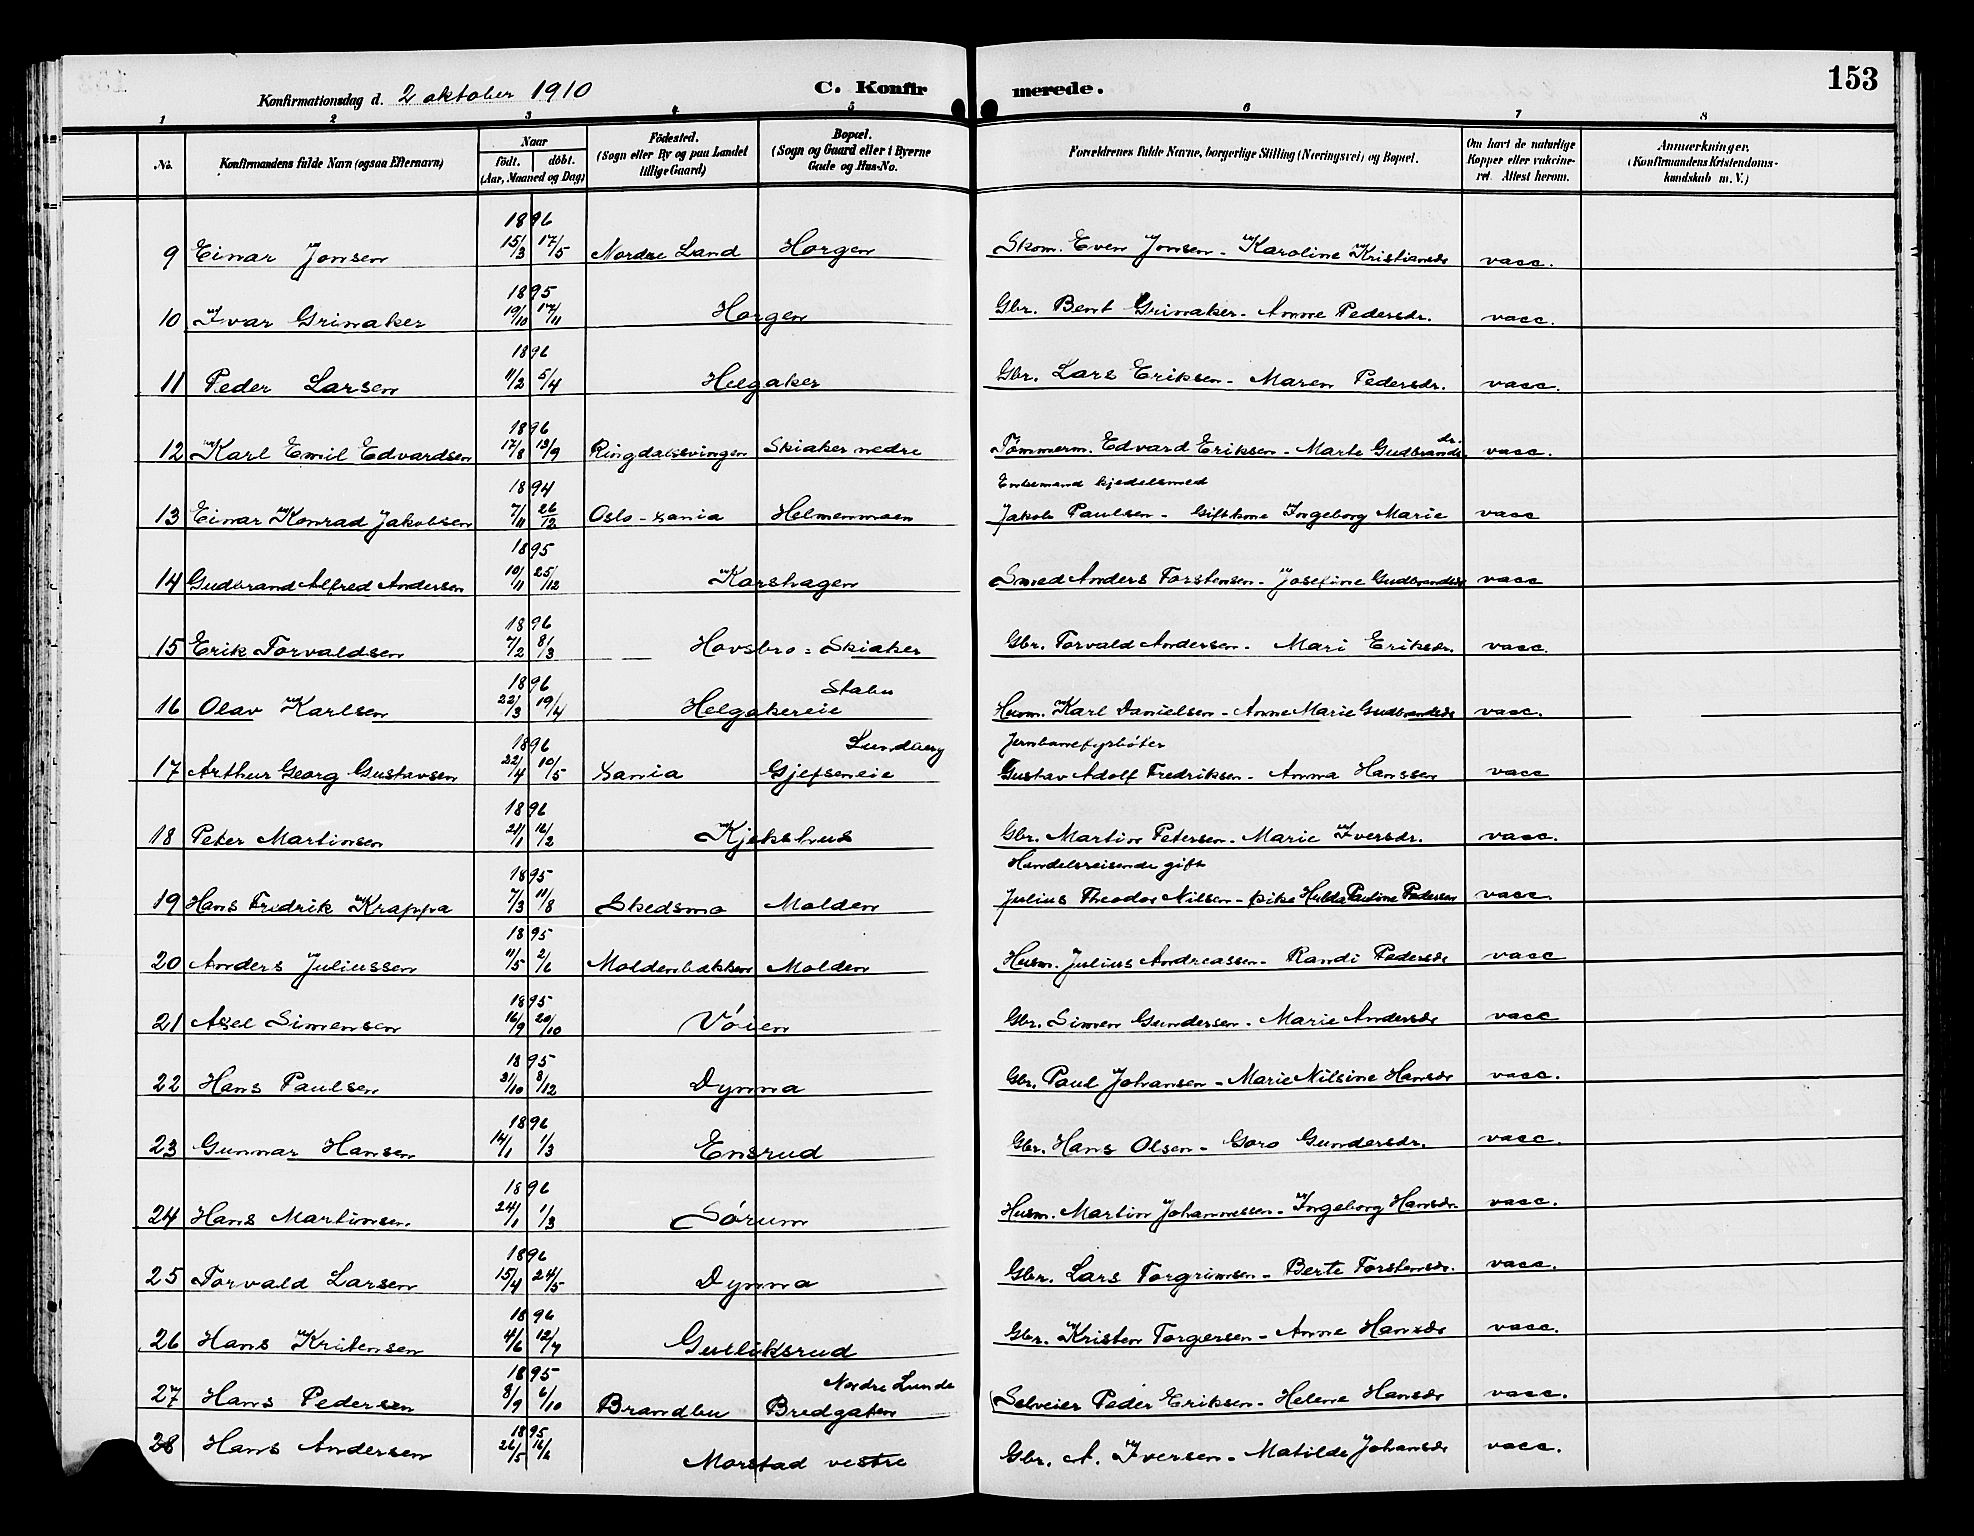 Konfirmationsdag d. 2 oktober 1910 C. Konfirmerede. 153
1 2 3 4 5 6 7 8
No. Konfirmandens fulde Navn (ogsaa Efternavn) Naar födt. döbt. (Aar, Maaned og Dag) Födested. (Sogn eller By og paa Landet tillige Gaard) Bopæl. (Sogn og Gaard eller i Byerne Gade og Hus-No. Forældrenes fulde Navne, borgerlige Stilling (Næringsvei) og Bopæl. Om havt de naturlige Kopper eller vakcineret. Attest herom. Anmærkninger. (Konfirmandens Kristendomskundskab m. V.)
1896
9 Einar Jonsen 15/3 17/5 Nordre Land Horgen Skom. Even Jonsen - Karoline Kristiansdr vacc.
1895
10 Ivar Grinaker 19/10 17/11 Horgen Gbr. Bent Grinaker - Anne Pedersdr. vacc.
1896
11 Peder Larsen 11/2 5/4 Helgaker Gbr. Lars Eriksen - Maren Pedersdr. vacc.
1896
12 Karl Emil Edvardsen 17/8 13/9 Ringdalssvingen Skiaker nedre Tömmerm. Edvard Eriksen - Marte Gudbrandsdr. vacc.
1894 Enkemand kjedelsmed
13 Einar Konrad Jakobsen 7/11 26/12 Oslo - Xania Helmenmoen Jakob Paulsen - Gift kone Ingeborg Marie vacc
1895
14 Gudbrand Alfred Andersen 10/11 25/12 Korshagen Smed Anders Torstensen - Josefine Gudbrandsdr vacc
1896
15 Erik Torvaldsen 7/2 8/3 Hovsbro = Skiaker Gbr. Torvald Andersen - Mari Eriksdr. vacc.
1896 Stabu
16 Olav Karlsen 22/3 19/4 Helgakereie Husm. Karl Danielsen - Anne Marie Gudbrandsdr vacc.
1896 Lundberg Jernbanefyrböter
17 Arthur Georg Gustavsen 22/4 10/5 Xania Gjefseneie Gustav Adolf Fredriksen - Anna Hanssen vacc
1896
18 Peter Martinsen 21/1 16/2 Kjekshus Gbr. Martin Petersen - Marie Iversdr. vacc.
1895 Handelsreisende gift
19 Hans Fredrik Krappa 7/3 11/8 Skedsmo Molden Julius Theodor Nilsen - pike Hulda Pauline Pedersen vacc.
1895
20 Anders Juliussen 11/5 2/6 Moldenbakken Molden Husm. Julius Andreassen - Randi Pedersdr vacc
1895
21 Axel Simensen 16/9 20/10 Vöien Gbr. Simen Gundersen - Marie Andersdr vacc
1895
22 Hans Paulsen 31/10 8/12 Dynna Gbr. Paul Johansen - Marie Nilsine Hansdr vacc.
1896
23 Gunnar Hansen 14/1 1/3 Ensrud Gbr. Hans Olsen - Goro Gundersdr. vacc.
1896
24 Hans Martinsen 24/1 1/3 Sørum Husm. Martin Johannessen - Ingeborg Hansdr. vacc.
1896
25 Torvald Larsen 15/4 24/5 Dynna Gbr. Lars Torgrimsen - Berte Torstensdr. vacc.
1896
26 Hans Kristensen 4/6 12/7 Gulliksrud Gbr. Kristen Torgersen - Anne Hansdr vacc.
1895 Nordre Lunde
27 Hans Pedersen 8/9 6/10 Brandbu Bredgaten Selveier Peder Eriksen - Helene Hansdr vacc.
1895
28 Hans Andersen 26/5 16/6 Morstad vestre Gbr. A. Iversen - Matilde Johansdr vacc.